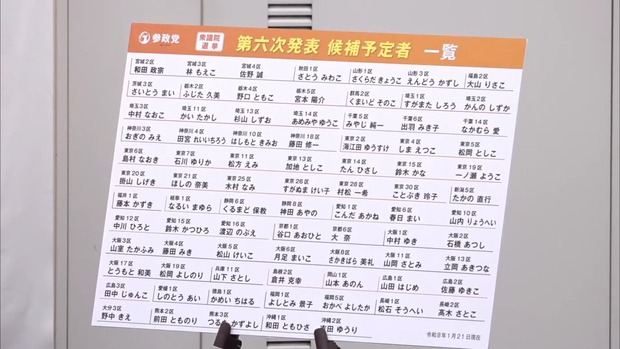 参政党 衆議院選挙 第六次発表 候補予定者 一覧
宮城2区 和田 政宗 宮城3区 林 もえこ 宮城4区 佐野 誠 秋田1区 さとう みわこ 山形1区 さくらだ きょうこ 山形3区 えんどう かずし 福島2区 大山 りさこ
茨城3区 さいとう まい 栃木2区 ふじた 久美 栃木4区 野口 ともこ 栃木5区 宮本 陽介 群馬2区 くまいど そのこ 埼玉1区 すがまた しろう 埼玉2区 かんの しずか
埼玉3区 中村 なおこ 埼玉11区 かい たかし 埼玉13区 杉山 しずお 埼玉14区 あめみや ゆうこ 千葉5区 みやじ 純一 千葉6区 出羽 みき子 千葉14区 なかむら 愛
神奈川3区 おぎの みえ 神奈川4区 田宮 れいいちろう 神奈川10区 はしもと きみお 神奈川18区 藤田 修一 東京2区 海江田 ゆうすけ 東京4区 しま えつこ 東京5区 松岡 としこ
東京6区 島村 なおき 東京7区 石川 ゆりか 東京11区 松方 えみ 東京13区 加地 としこ 東京14区 たん ひさし 東京15区 鈴木 かな 東京19区 一ノ瀬 ようこ
東京20区 掛山 しげき 東京21区 ほしの 奈美 東京25区 木村 なみ 東京26区 すがぬま けい子 東京28区 村松 一希 東京30区 ことぶき 玲子 新潟5区 たかの 直行
福井1区 藤本 かずき 岐阜1区 なるい まゆら 静岡6区 くるまど 保教 静岡8区 神田 あやの 愛知1区 こんだ あかね 愛知6区 春日 まい 愛知10区 山内 りょうへい
愛知12区 中川 ひろひこ 愛知15区 鈴木 かつひろ 愛知16区 渡辺 のぶえ 京都1区 谷口 あおひと 京都6区 大 奈 大阪1区 中村 ゆき 大阪2区 石橋 あつし
大阪3区 山室 たかふみ 大阪4区 藤田 みき 大阪5区 松山 けいこ 大阪6区 月足 まいこ 大阪8区 さかきばら 美礼 大阪11区 山岡 さとみ 大阪13区 立岡 あきつな
大阪17区 とうもと 和美 大阪19区 松岡 よしのり 兵庫11区 山下 さとし 島根2区 倉井 克幸 岡山1区 山本 あのん 広島1区 山田 はじめ 広島2区 佐藤 やすこ
広島3区 田中 じゅんこ 愛媛1区 しのとう あい 徳島1区 かめい ちはる 福岡1区 よしとみ 景子 福岡5区 おかべ よしたか 長崎1区 松石 そうへい 長崎2区 高木 さとこ
大分3区 野中 きえ 熊本2区 前田 とものり 熊本3区 かずよし 沖縄1区 和田 ともひさ 沖縄2区 ゆうり
令和8年1月21日現在